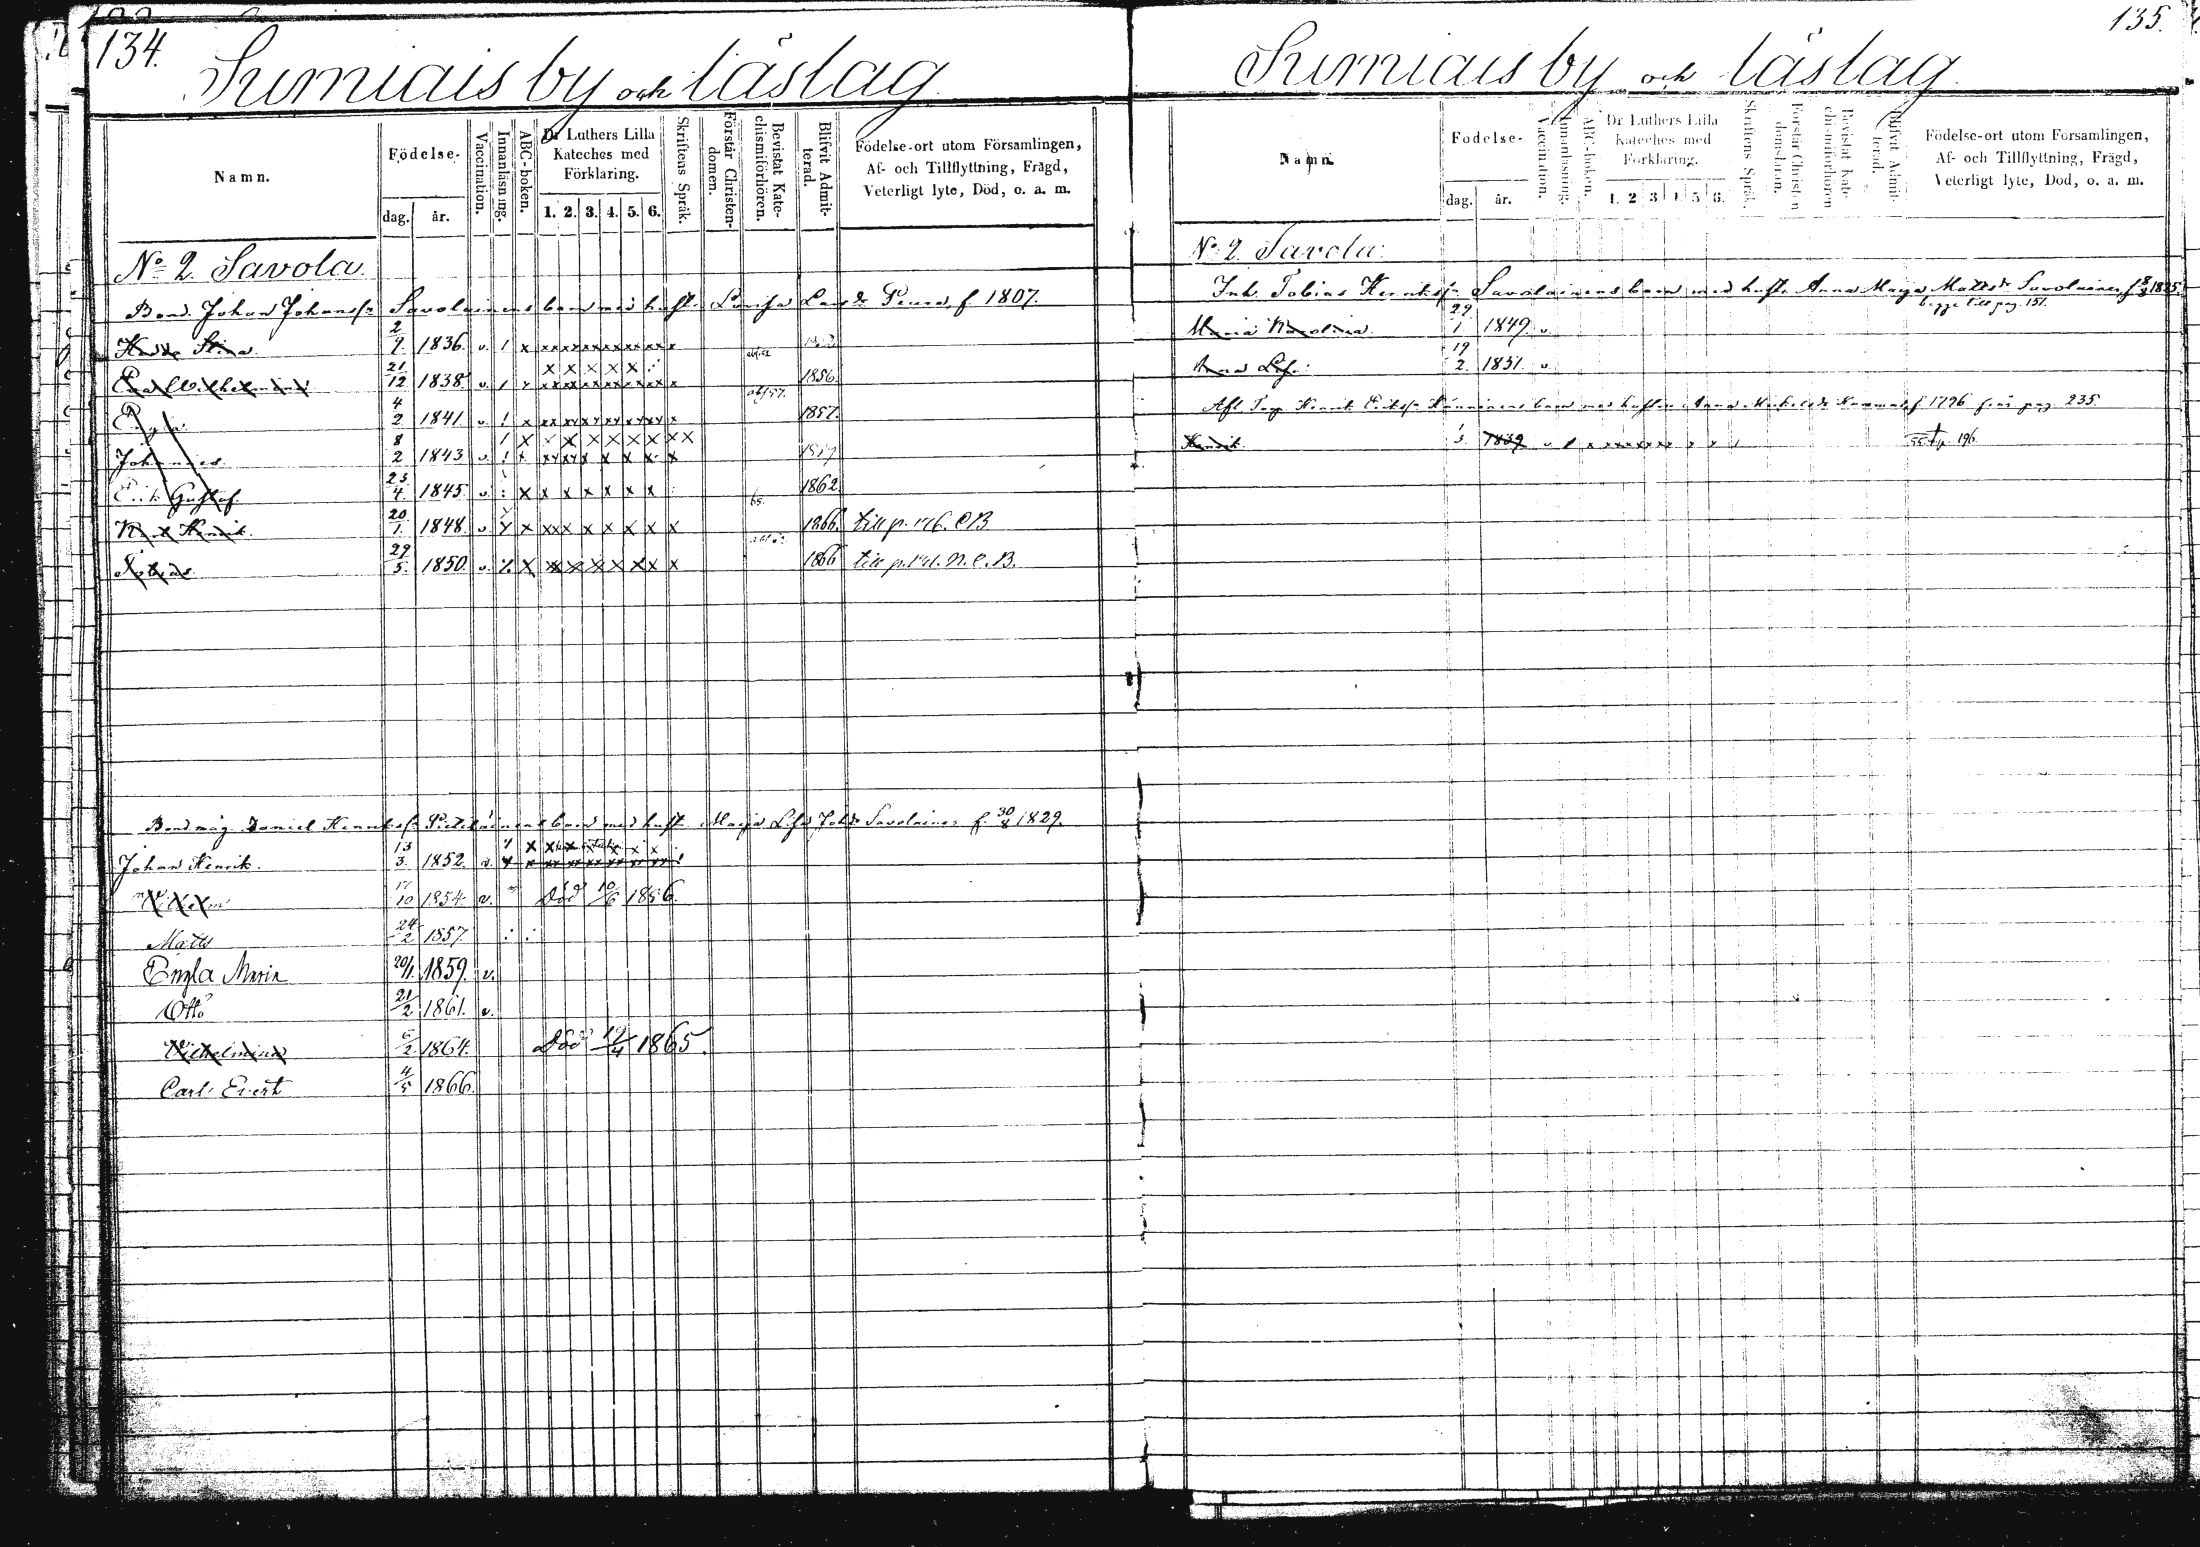 134.
Sumiais by och läslag
Namn.
Födelse-
dag. år.
Vaccination.
Innanläsning.
ABC-boken.
Dr Luthers Lilla Kateches med Förklaring.
1. 2. 3. 4. 5. 6.
Skriftens Språk.
Förstår Christendomen.
Bevistat Katechismiförhören.
Blifvit Admitterad.
Födelse-ort utom Församlingen,
Af- och Tillflyttning, Frägd,
Veterligt lyte, Död, o. a. m.
No 2 Savola
Bond. Johan Johanss:n Savolainens barn med hust. Lovisa f. 1807.
Hedda Stina 2/9 1836. v.
Eva Wilhelmina 21/12 1838 v. 1856
4/2 1841 v. 1857.
Johannes 8/2 1843 v.
Erik Gustaf. 23/4 1845 v. 1862
Henrik. 20/1 1848. v 1866. till p. 176. CB
Tobias 29/5 1850. v. 1866 till N. C. B.
Bondmåg Daniel Henrikss:n barn med hust. Maja Lisa Joh:dr Savolainen f. 30/8 1829.
Johan Henrik. 13/3 1852. v.
Vilhelm 17/10 1854 v. Död 10/6 1856.
Matts 24/2 1857
Engla Maria 20/1 1859. v.
Otto 21/2 1861. v.
Vilhelmina 6/2 1864. Död 19/4 1865.
Carl Evert 4/5 1866.
135.
Sumiais by och läslag
Namn.
Födelse-
dag. år.
Vaccination.
Innanläsning.
ABC-boken.
Dr Luthers Lilla Kateches med Förklaring.
1. 2 3 4 5 6.
Skriftens Språk.
Förstår Christendomen.
Bevistat Katechismiförhören
Blifvit Admitterad.
Födelse-ort utom Församlingen,
Af- och Tillflyttning, Frägd,
Veterligt lyte, Död, o. a. m.
No 2 Savola
Inh. Tobias Henrikss:n Savolainens barn med hust. Anna Maja Mattsdr Savolainen f. 1825.
begge till pag. 151.
Maria Karolina 29/1 1849 v
Anna Lis: 19/2 1851 v
Afl. Torp. Henrik Erikss:n barn med hustrun Anna f. 1796 från pag 235.
Henrik. 1/3 1839 v p. 196